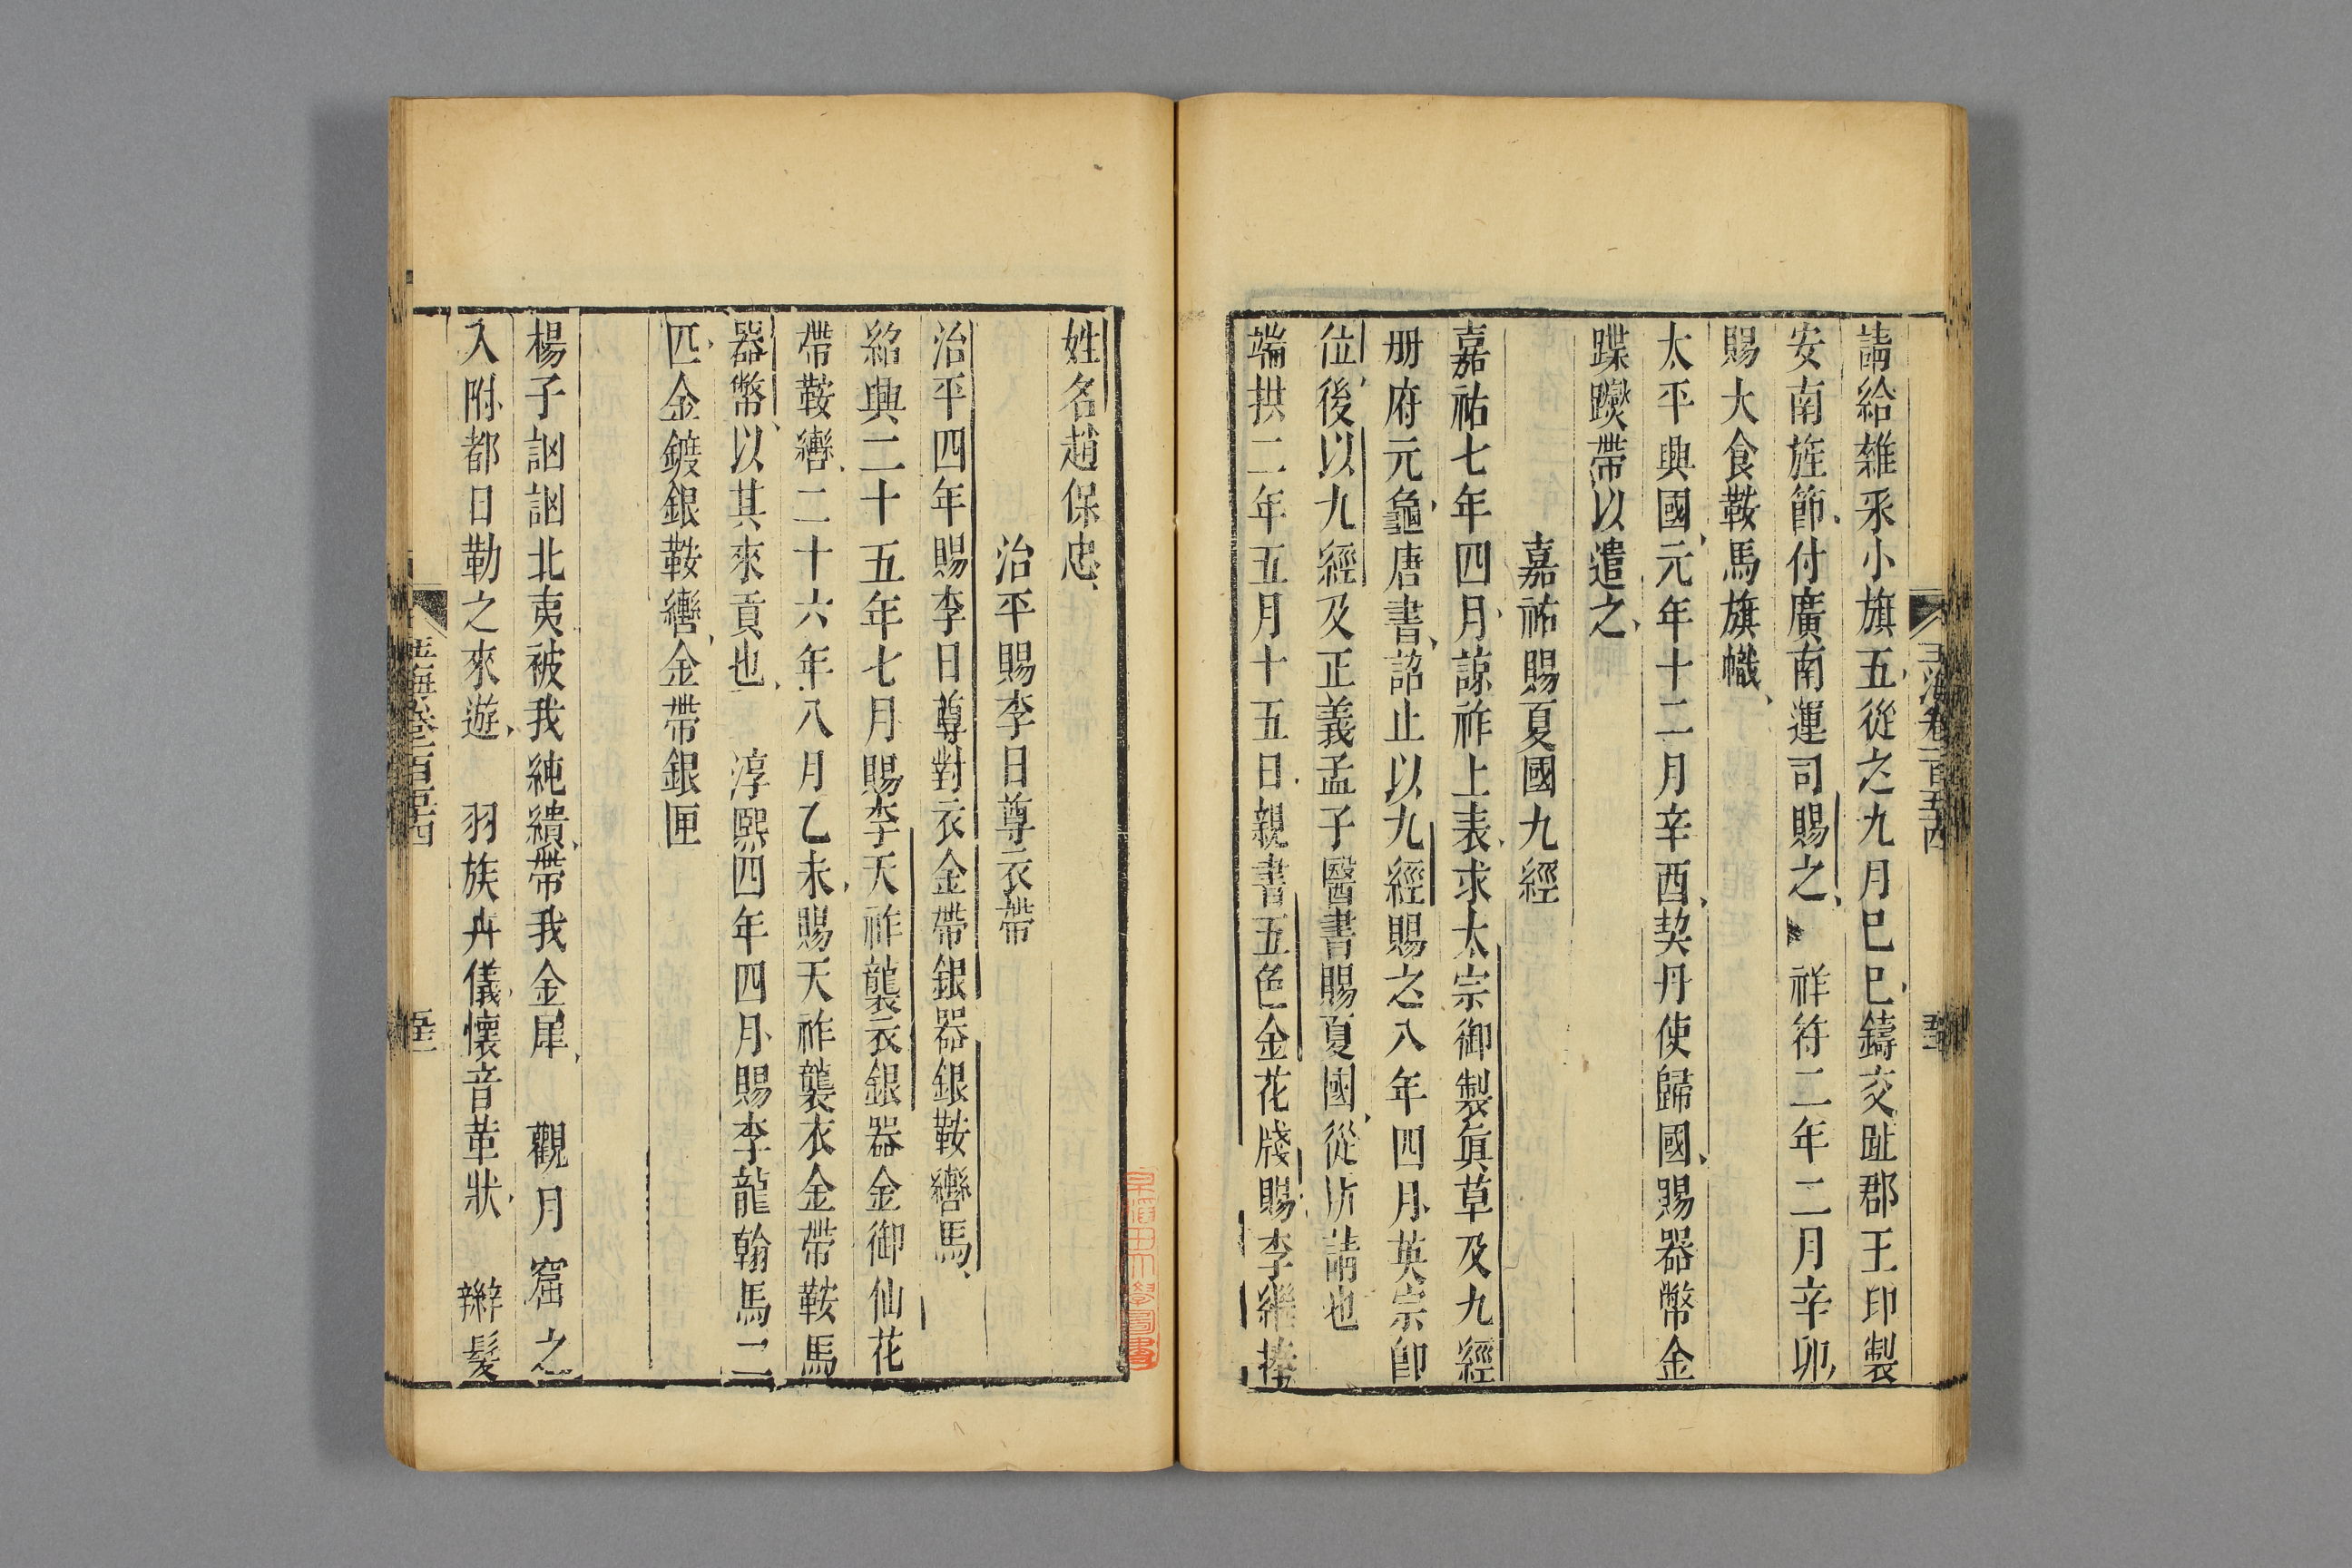 請給雜釆小旗五從之九月巳巳鑄交趾郡王印製
安南旌節付廣南運司賜之 祥符二年二月辛卯
賜大食鞍馬旗幟
太平興國元年十二月辛酉契丹使歸國賜器幣金
蹀躞帶以遣之
嘉祐賜夏國九經
嘉祐七年四月諒祚上表求太宗御製眞草及九經
册府元龜唐書詔止以九經賜之八年四月英宗卽
位後以九經及正義孟子醫書賜夏國從所請也
端拱二年五月十五日親書五色金花牋賜李繼捧
姓名趙保忠
治平賜李日尊衣帶
治平四年賜李日尊對衣金帶銀器銀鞍轡馬
紹興二十五年七月賜李天祚襲衣銀器金御仙花
帶鞍轡二十六年八月乙未賜天祚襲衣金帶鞍馬
器幣以其來貢也 淳熙四年四月賜李龍翰馬二
匹金鍍銀鞍轡金帶銀匣
楊子訩訩北夷被我純繢帶我金犀 觀月窟之
入附都日勒之來遊 羽族卉儀懷音革狀 辮髮
玉海卷一百五十四